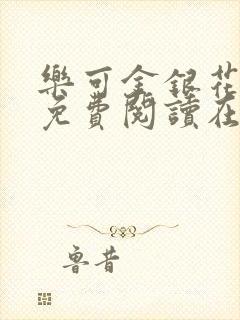 樂可金銀花
免費閱讀在
魯昔